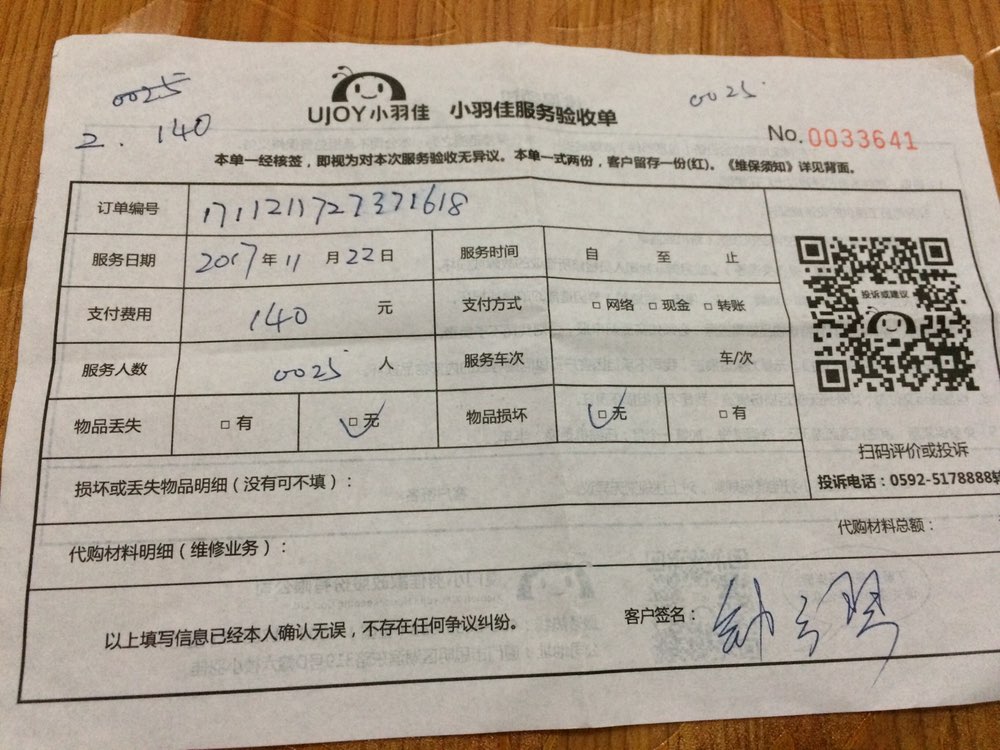 0025
0025
2. 140
UJOY小羽佳 小羽佳服务验收单
No.0033641
本单一经核签，即视为对本次服务验收无异议。本单一式两份，客户留存一份(红)。《维保须知》详见背面。
订单编号 17112117273371618
服务日期 2017年11月22日 服务时间 自 至 止
支付费用 140 元 支付方式 □网络 □现金 □转账
投诉或建议
服务人数 0025 人 服务车次 车/次
物品丢失 □有 □无 物品损坏 □无 □有
扫码评价或投诉
投诉电话：0592-5178888转
损坏或丢失物品明细（没有可不填）：
代购材料明细（维修业务）：
代购材料总额：
以上填写信息已经本人确认无误，不存在任何争议纠纷。
客户签名：